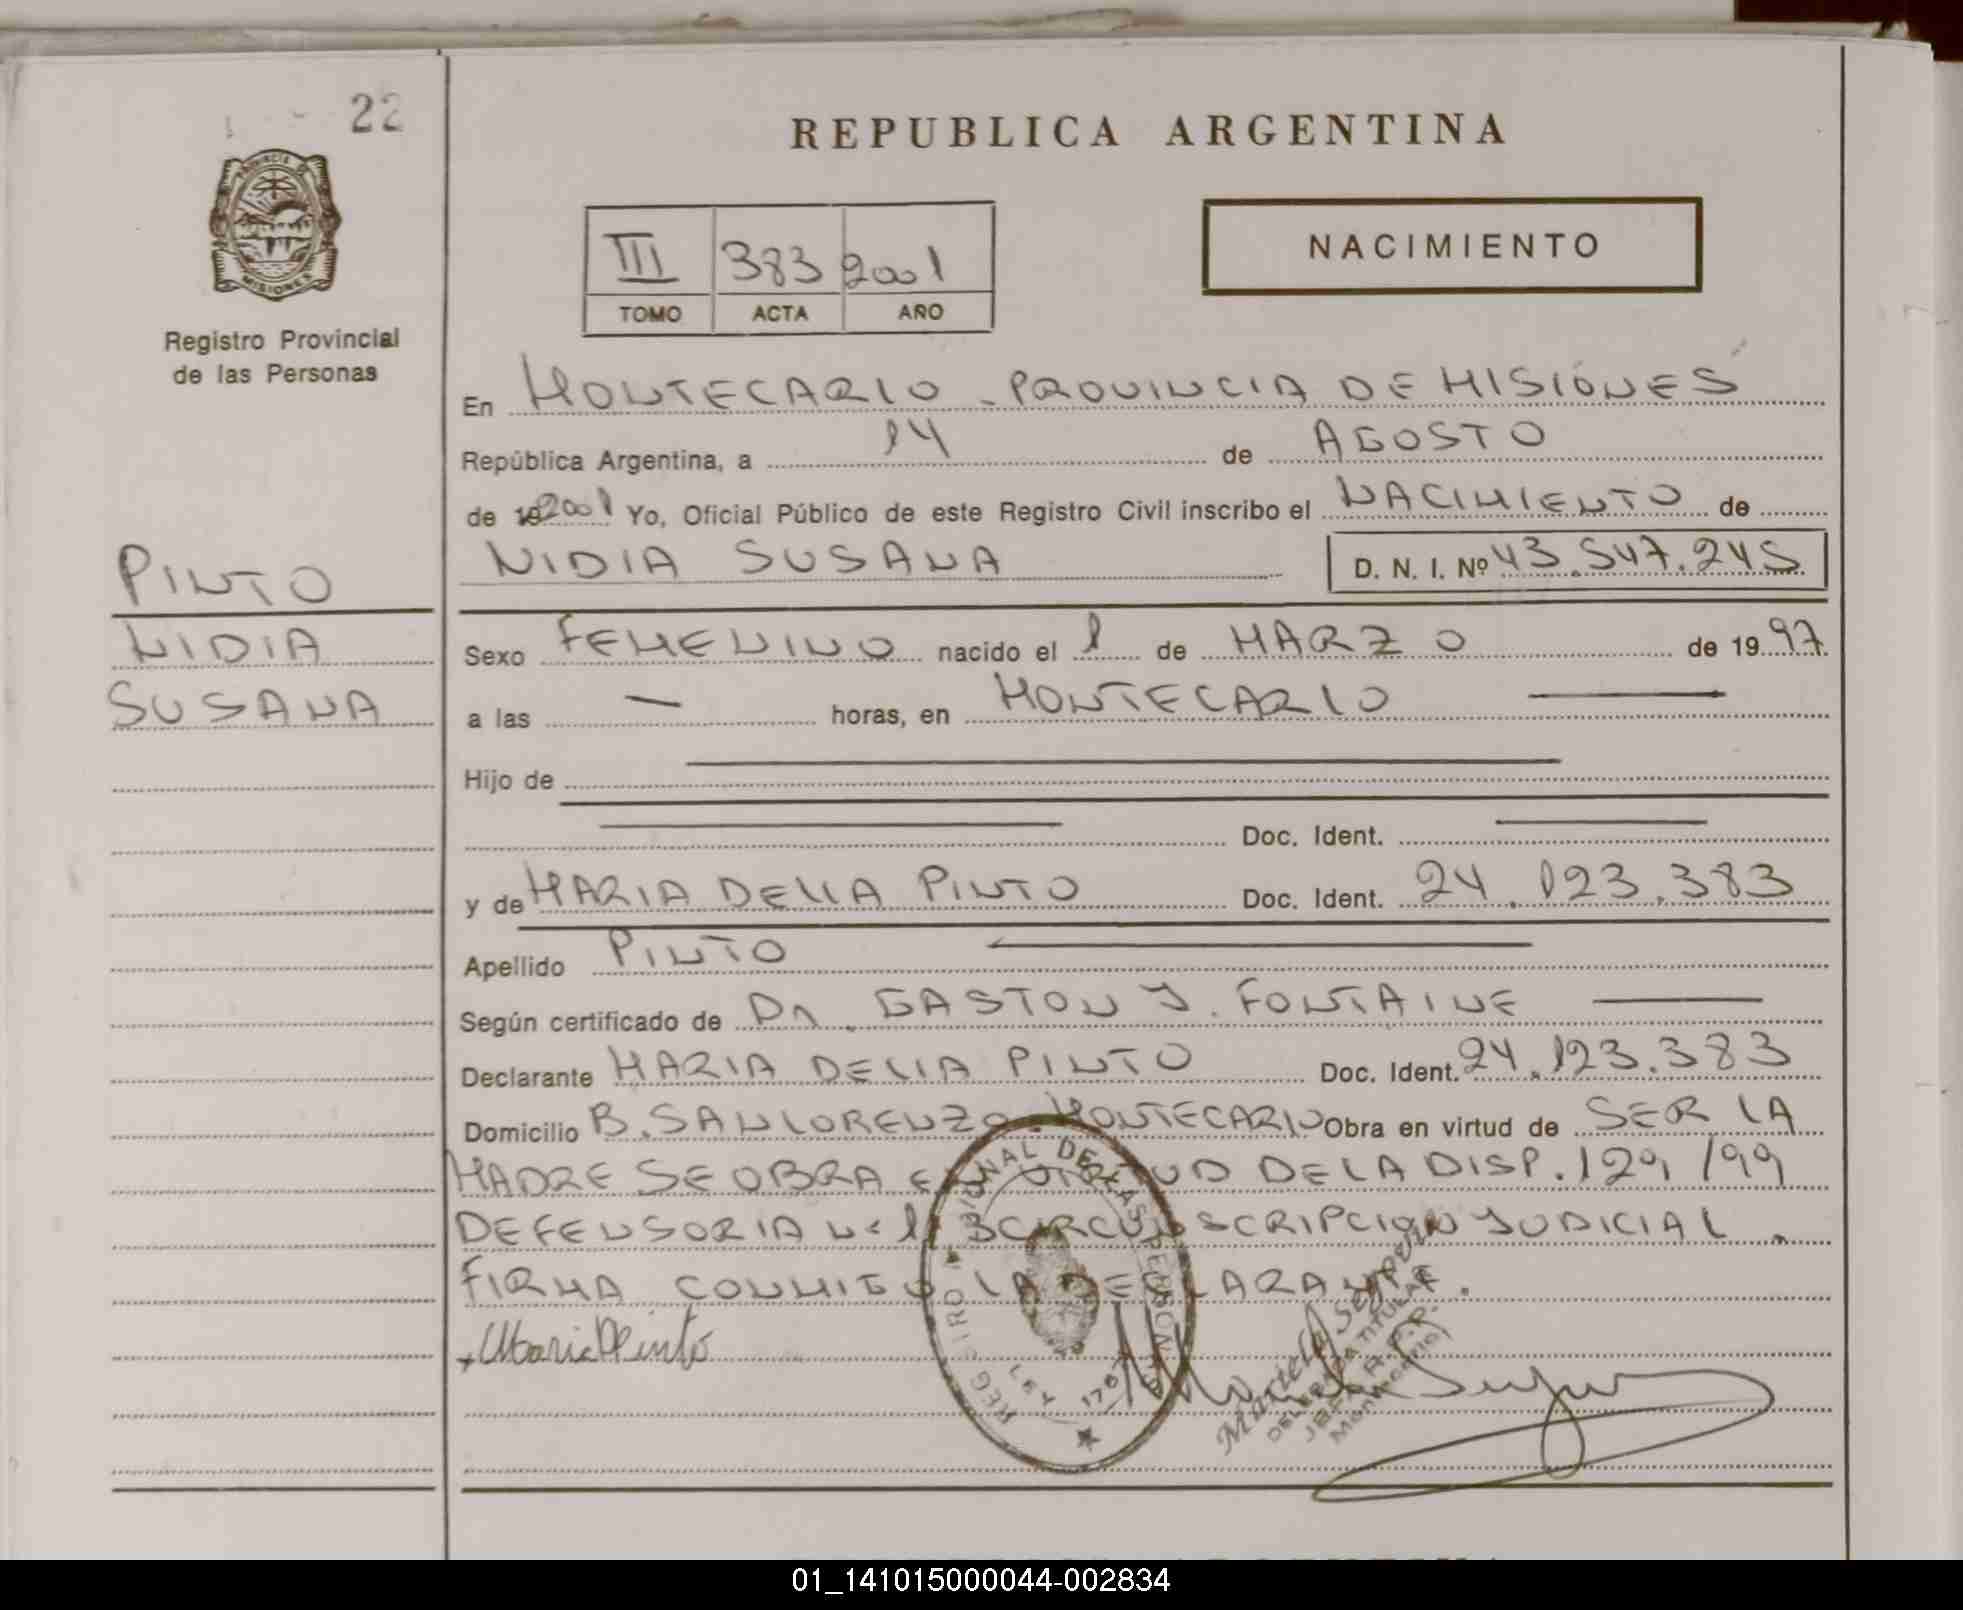 22
REPUBLICA ARGENTINA
PROVINCIA DE
MISIONES
Registro Provincial
de las Personas
III 383 2001
TOMO ACTA AÑO
NACIMIENTO
En MONTECARLO - PROVINCIA DE MISIONES
República Argentina, a 14 de AGOSTO
de 19 2001 Yo, Oficial Público de este Registro Civil inscribo el NACIMIENTO de
NIDIA SUSANA D. N. I. Nº 43.547.245
PINTO
NIDIA
SUSANA
Sexo FEMENINO nacido el 1 de MARZO de 19 97
a las — horas, en MONTECARLO
Hijo de
Doc. Ident.
y de MARIA DELIA PINTO Doc. Ident. 24.123.383
Apellido PINTO
Según certificado de Dr. GASTON J. FONTAINE
Declarante MARIA DELIA PINTO Doc. Ident. 24.123.383
Domicilio B. SAN LORENZO. MONTECARLO Obra en virtud de SER LA
MADRE SE OBRA EN VIRTUD DE LA DISP. 129/99
DEFENSORIA Nº 1 3 CIRCUNSCRIPCION JUDICIAL.
FIRMA CONMIGO LA DECLARANTE.
Maria D Pinto
DELEGADA TITULAR
Montecarlo
01_141015000044-002834